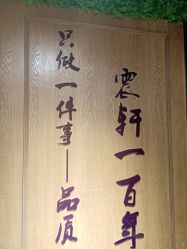 轩一百年
只做一件事—品质